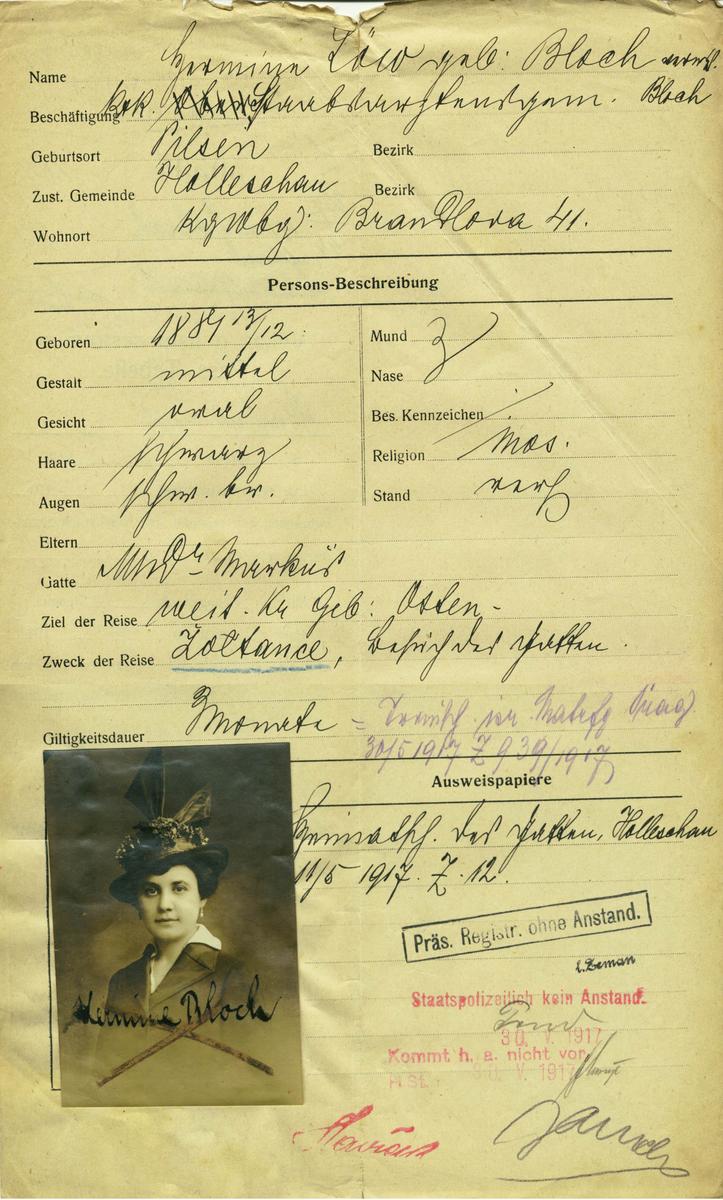 Name Hermine Löw geb: Bloch
Beschäftigung k.k. Staabsarztensgem. Bloch
Geburtsort Pilsen Bezirk
Zust. Gemeinde Holleschau Bezirk
Wohnort KgWbg: Brandlova 41.
Persons-Beschreibung
Geboren 13/12
Gestalt mittel
Gesicht oval
Haare schwarz
Augen schw. br.
Mund
Nase
Bes. Kennzeichen
Religion mos.
Stand verh
Eltern
Gatte MUDr Markus
Ziel der Reise weit. Kr Geb: Osten-
Zweck der Reise Zoltance, Besuch des Gatten.
Giltigkeitsdauer 3 Monate
30/5 1917 Z 939/1917
Ausweispapiere
Heimatsch. des Gatten, Holleschau
11/5 1917. Z. 12.
Präs. Registr. ohne Anstand.
Zeman
Staatspolizeilich kein Anstand.
30. V. 1917
Kommt h. a. nicht vor
P. St. 30. V. 1917
Hermine Bloch